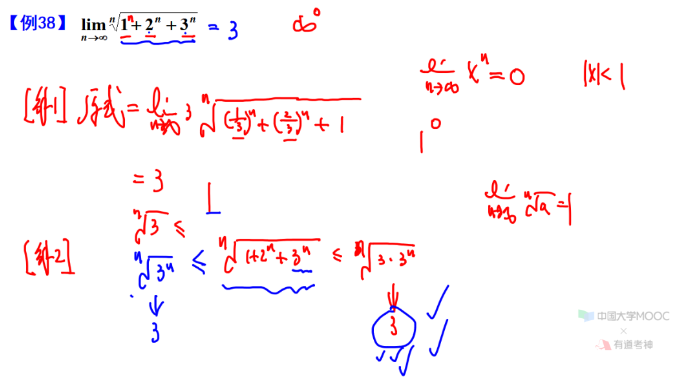 【例38】 lim_{n→∞} ⁿ√(1ⁿ+2ⁿ+3ⁿ) = 3 ∞⁰
lim_{n→∞} xⁿ = 0 |x|<1
[解1] 原式 = lim_{n→∞} 3 ⁿ√((1/3)ⁿ+(2/3)ⁿ+1) 1⁰
= 3 1
lim_{n→∞} ⁿ√a = 1
ⁿ√3 ≤
[解2] ⁿ√(3ⁿ) ≤ ⁿ√(1+2ⁿ+3ⁿ) ≤ ⁿ√(3·3ⁿ)
↓ ↓
3 3
中国大学MOOC
×
有道考神